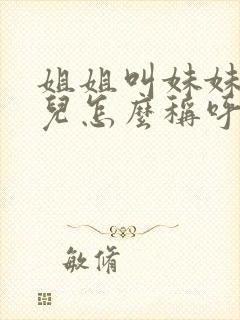 姐姐叫妹妹
兒怎麼稱呼
敏脩